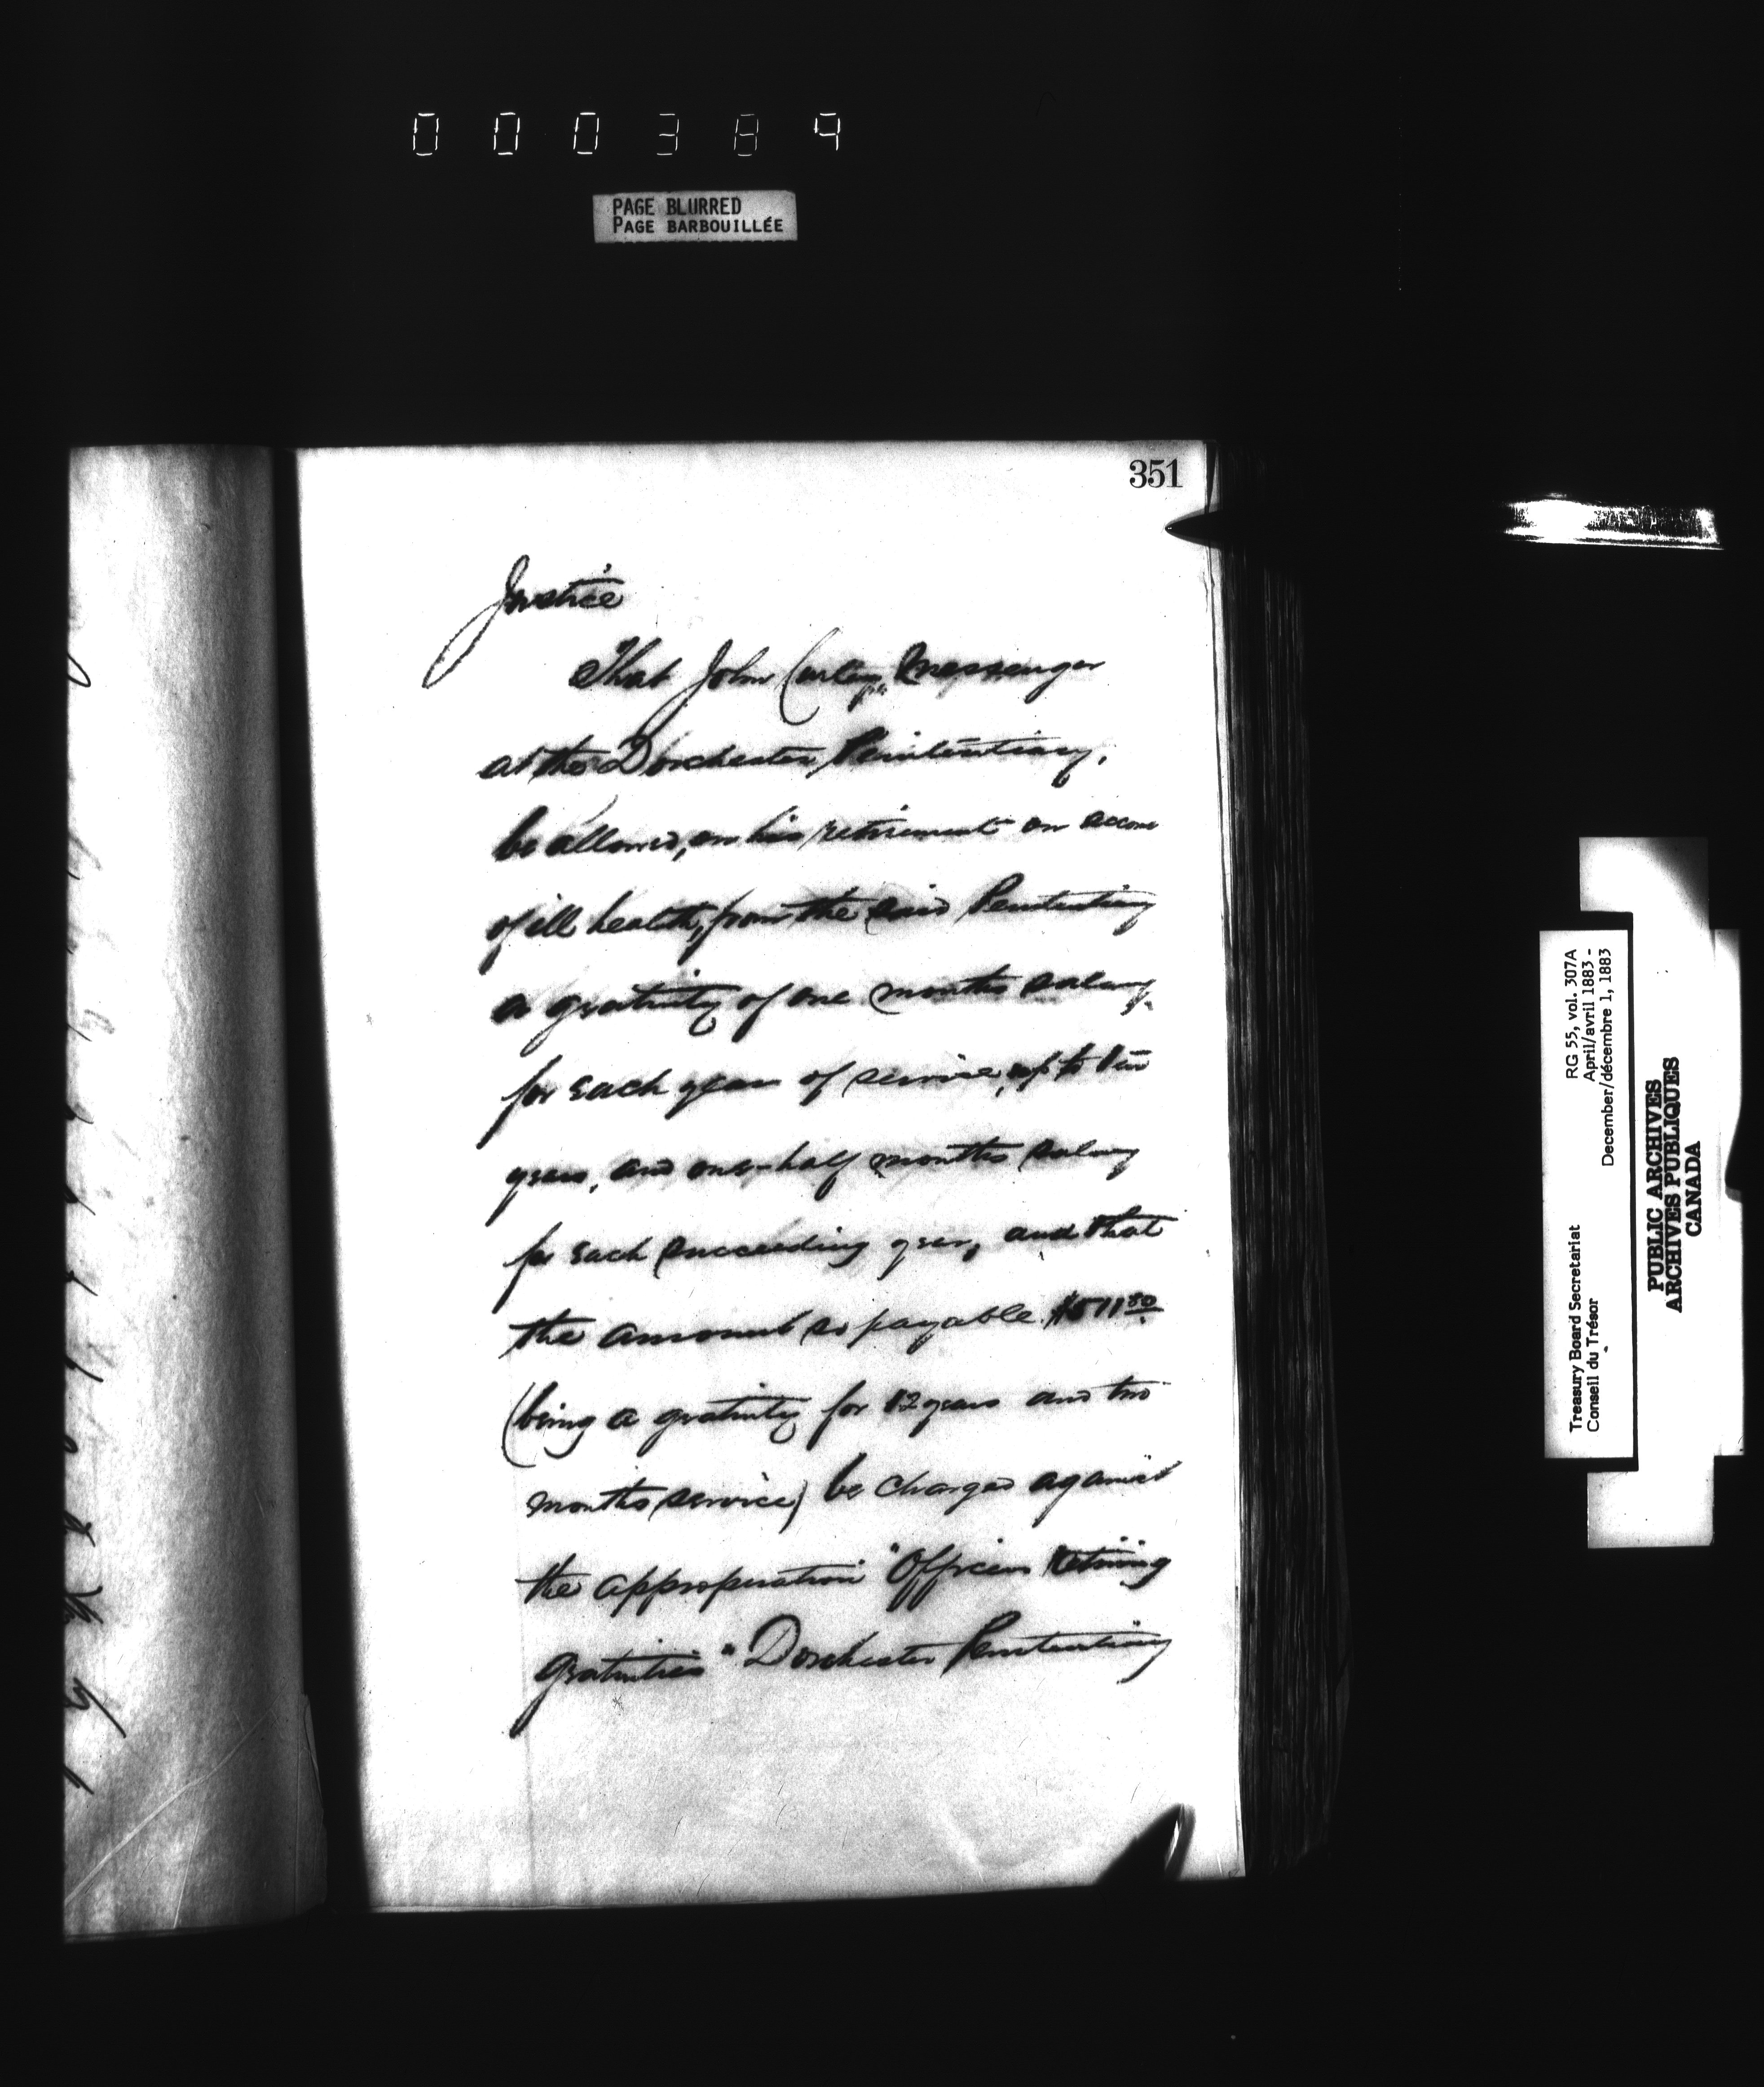 000384
PAGE BLURRED
PAGE BARBOUILLÉE
351
Justice
That John Curley, Messenger
at the Dorchester Penitentiary,
be allowed, on his retirement on accou
of ill health, from the said Penitentiary
a gratuity of one months salary
for each year of service, up to five
years, and one-half months salary
for each succeeding year, and that
the amount so payable $571 80
(being a gratuity for 12 years and two
months service) be charged against
the appropriation "Officers retiring
gratuities" Dorchester Penitentiary
RG 55, vol. 307A
April/avril 1883 -
December/décembre 1, 1883
Treasury Board Secretariat
Conseil du Trésor
PUBLIC ARCHIVES
ARCHIVES PUBLIQUES
CANADA